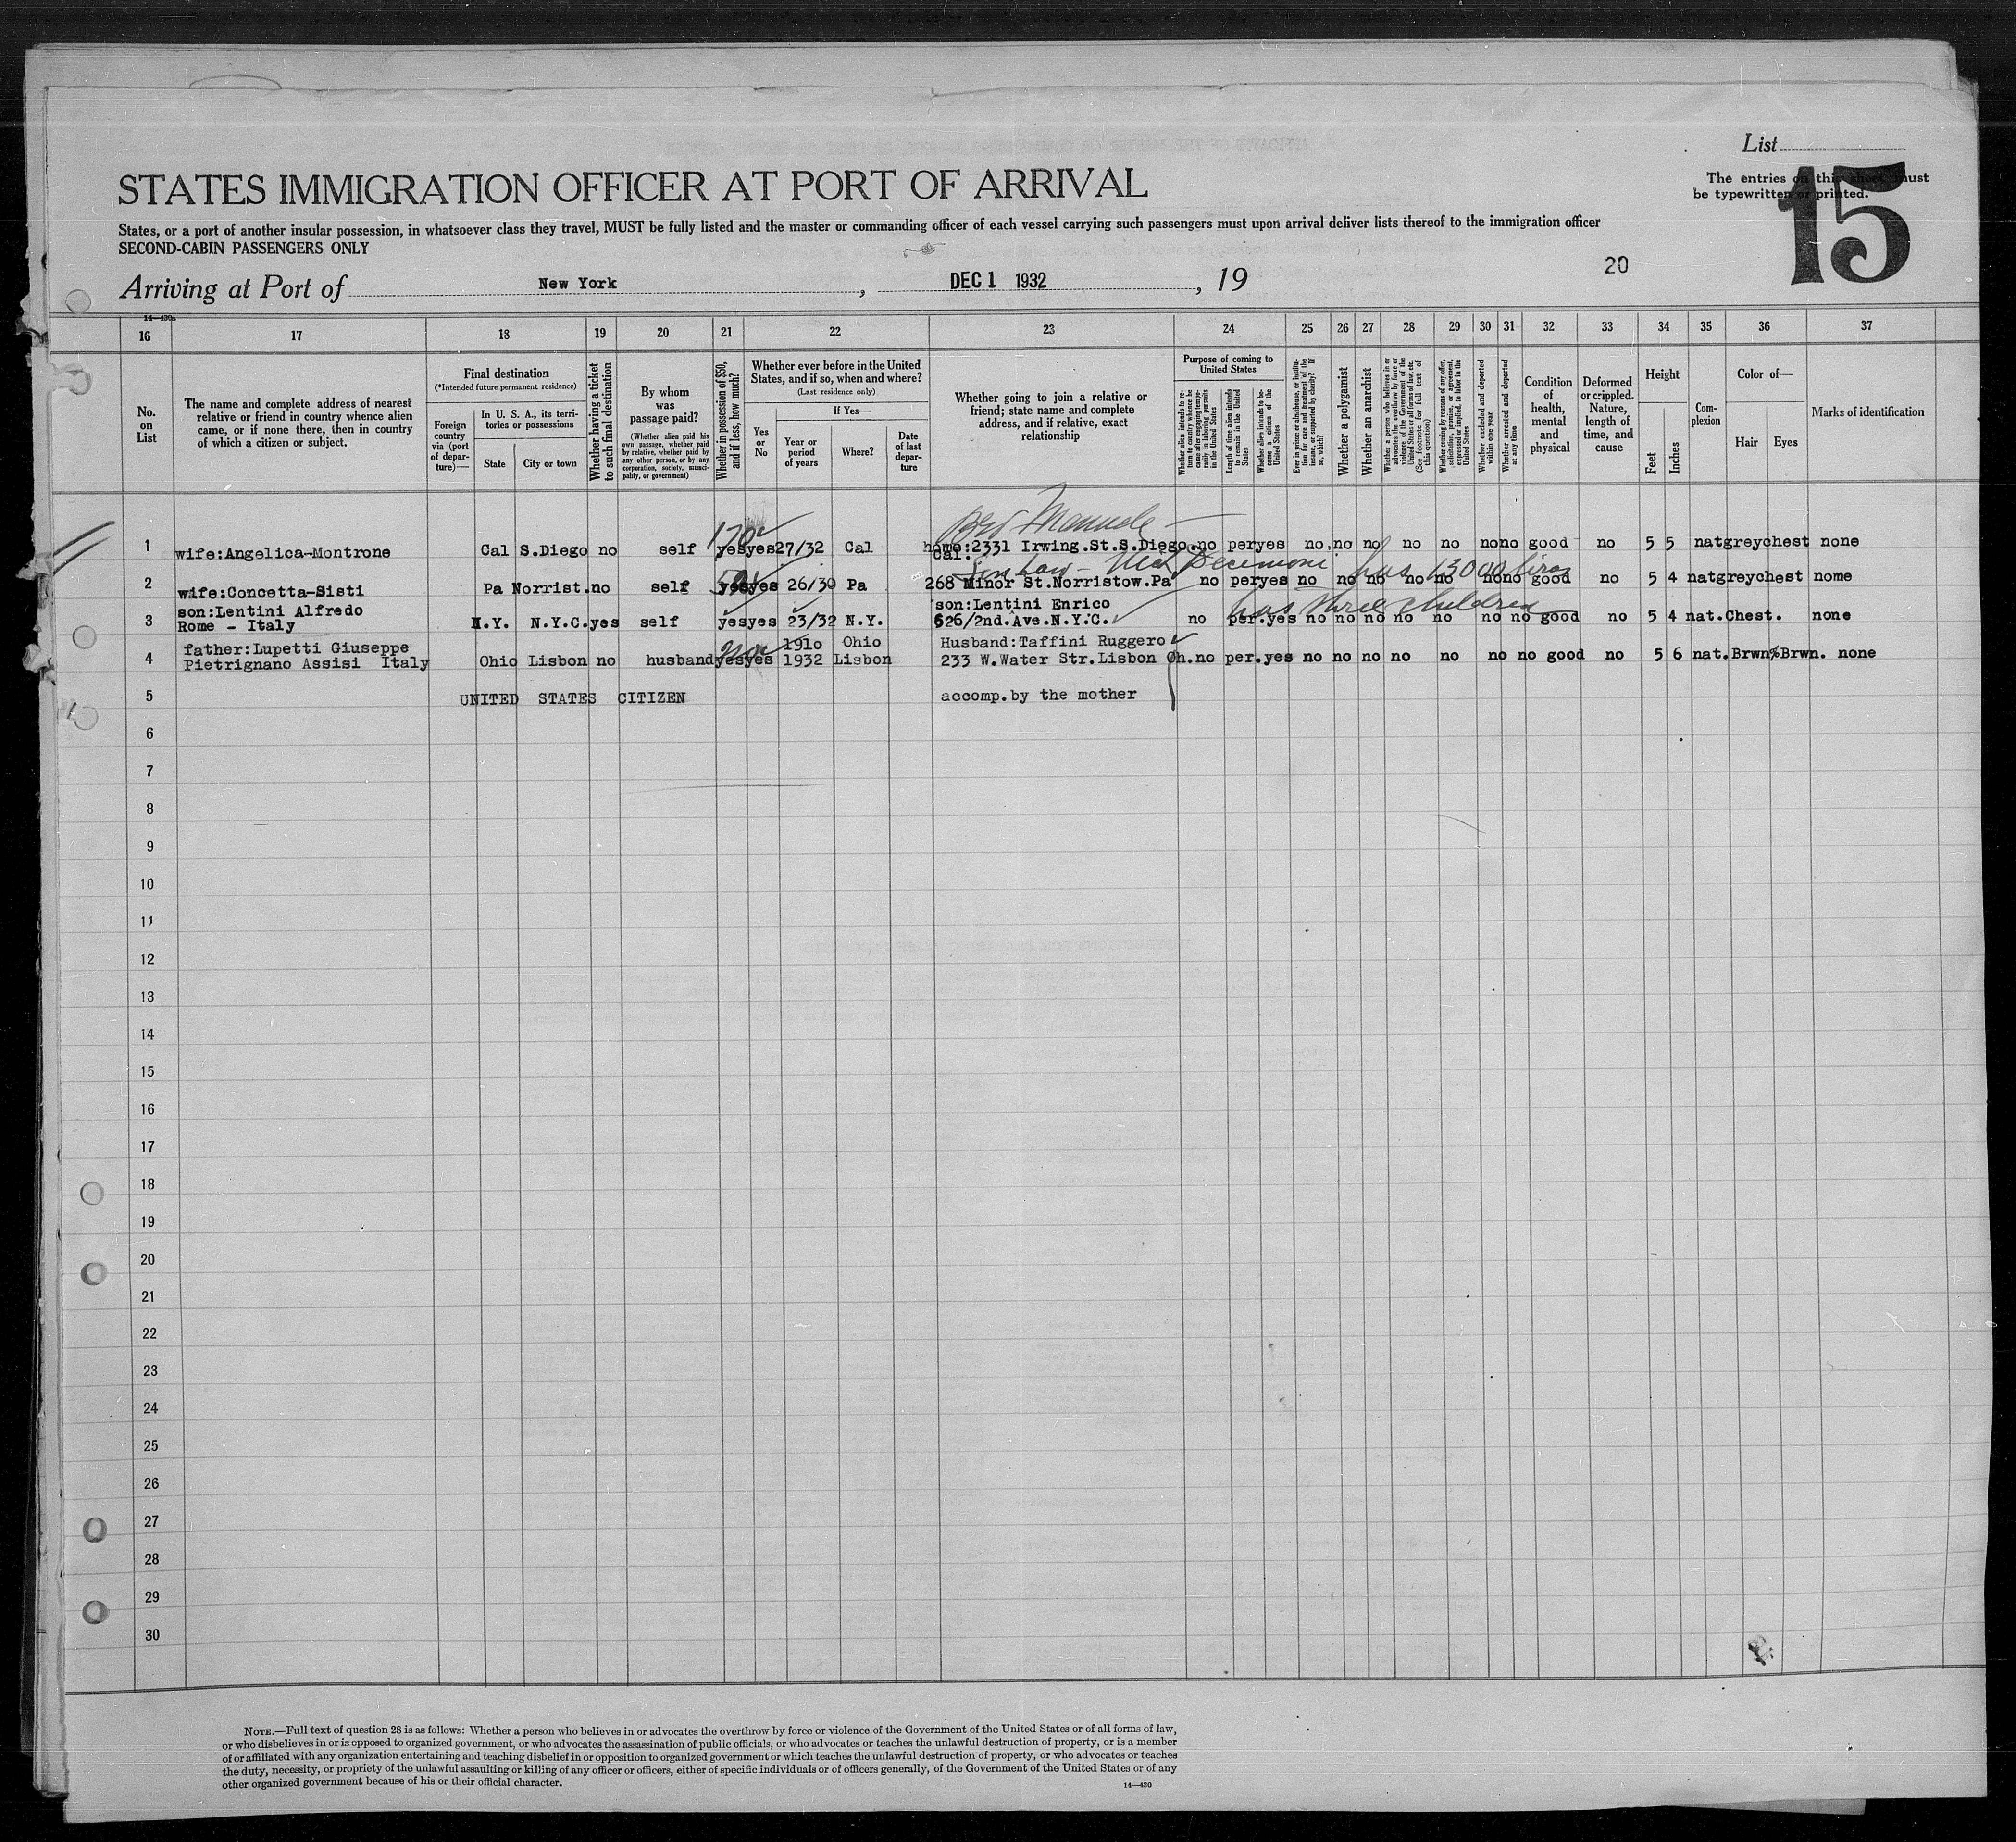 List
15
The entries on this sheet must
be typewritten or printed.
STATES IMMIGRATION OFFICER AT PORT OF ARRIVAL
States, or a port of another insular possession, in whatsoever class they travel, MUST be fully listed and the master or commanding officer of each vessel carrying such passengers must upon arrival deliver lists thereof to the immigration officer
SECOND-CABIN PASSENGERS ONLY
20
Arriving at Port of New York, DEC 1 1932, 19
14—430a
16 17 18 19 20 21 22 23 24 25 26 27 28 29 30 31 32 33 34 35 36 37
No. on List
The name and complete address of nearest
relative or friend in country whence alien
came, or if none there, then in country
of which a citizen or subject.
Final destination
(*Intended future permanent residence)
Foreign country via (port of departure)—
In U. S. A., its territories or possessions
State
City or town
Whether having a ticket to such final destination
By whom was passage paid?
(Whether alien paid his own passage, whether paid by relative, whether paid by any other person, or by any corporation, society, municipality, or government)
Whether in possession of $50, and if less, how much?
Whether ever before in the United
States, and if so, when and where?
(Last residence only)
Yes or No
If Yes—
Year or period of years
Where?
Date of last departure
Whether going to join a relative or
friend; state name and complete
address, and if relative, exact
relationship
Purpose of coming to United States
Whether alien intends to return to country whence he came after engaging temporarily in laboring pursuits in the United States
Length of time alien intends to remain in the United States
Whether alien intends to become a citizen of the United States
Ever in prison or almshouse, or institution for care and treatment of the insane, or supported by charity? If so, which?
Whether a polygamist
Whether an anarchist
Whether a person who believes in or advocates the overthrow by force or violence of the Government of the United States or all forms of law, etc. (See footnote for full text of this question)
Whether coming by reasons of any offer, solicitation, promise, or agreement, expressed or implied, to labor in the United States
Whether excluded and deported within one year
Whether arrested and deported at any time
Condition of health, mental and physical
Deformed or crippled. Nature, length of time, and cause
Height
Feet
Inches
Complexion
Color of—
Hair
Eyes
Marks of identification
170
1 wife:Angelica-Montrone Cal S.Diego no self yes yes 27/32 Cal home:2331 Irwing.St.S.Diego. no per yes no no no no no no no good no 5 5 nat grey chest none
Cal:
has 13000 liras
2 wife:Concetta-Sisti Pa Norrist. no self yes yes 26/30 Pa 268 Minor St.Norristow.Pa no per yes no no no no no no no good no 5 4 nat grey chest nome
has three children
son:Lentini Alfredo son:Lentini Enrico
3 Rome - Italy N.Y. N.Y.C. yes self yes yes 23/32 N.Y. 626/2nd.Ave.N.Y.C. no per. yes no no no no no no no good no 5 4 nat. Chest. none
father:Lupetti Giuseppe 1910 Ohio Husband:Taffini Ruggero
4 Pietrignano Assisi Italy Ohio Lisbon no husband yes yes 1932 Lisbon 233 W.Water Str.Lisbon Oh. no per. yes no no no no no no no good no 5 6 nat. Brwn% Brwn. none
5 UNITED STATES CITIZEN accomp.by the mother
6
7
8
9
10
11
12
13
14
15
16
17
18
19
20
21
22
23
24
25
26
27
28
29
30
NOTE.—Full text of question 28 is as follows: Whether a person who believes in or advocates the overthrow by force or violence of the Government of the United States or of all forms of law,
or who disbelieves in or is opposed to organized government, or who advocates the assassination of public officials, or who advocates or teaches the unlawful destruction of property, or is a member
of or affiliated with any organization entertaining and teaching disbelief in or opposition to organized government or which teaches the unlawful destruction of property, or who advocates or teaches
the duty, necessity, or propriety of the unlawful assaulting or killing of any officer or officers, either of specific individuals or of officers generally, of the Government of the United States or of any
other organized government because of his or their official character.
14—430